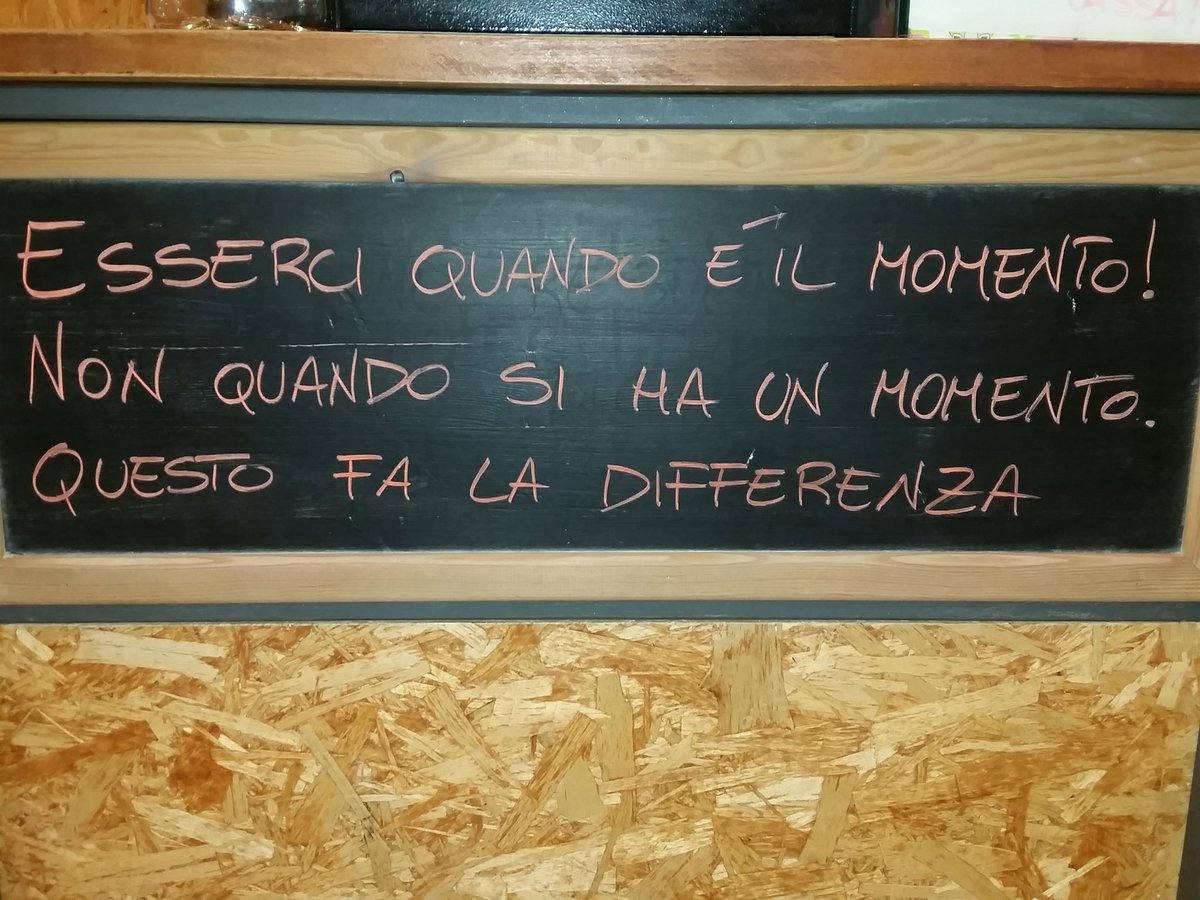 CASSA
ESSERCI QUANDO É IL MOMENTO!
NON QUANDO SI HA UN MOMENTO.
QUESTO FA LA DIFFERENZA